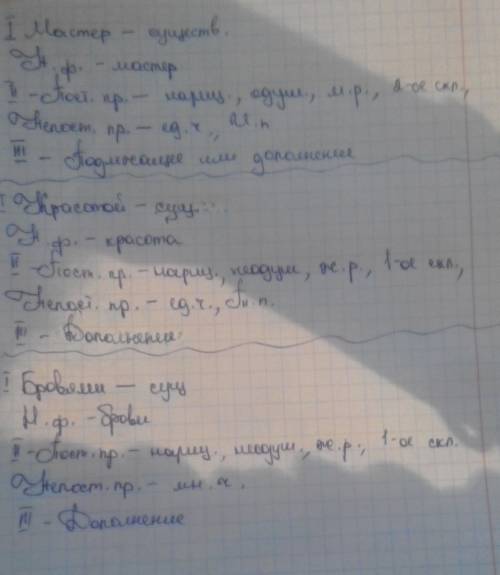 I Мастер – существ.
Н.ф. - мастер
II - Пост. пр. – нариц., одуш., м.р., 2-ое скл.,
Непост. пр. – ед.ч., И.п
III - Подлежащие или дополнение
I Красотой – сущ.
Н.ф. - красота
II - Пост. пр. - нариц., неодуш., ж.р., 1-ое скл.,
Непост. пр. – ед.ч., п.
III - Дополнение
I Бровями – сущ
Н.ф. - брови
II - Пост. пр. - нариц., неодуш., ж.р., 1-ое скл.
Непост. пр. – мн.ч.
III - Дополнение